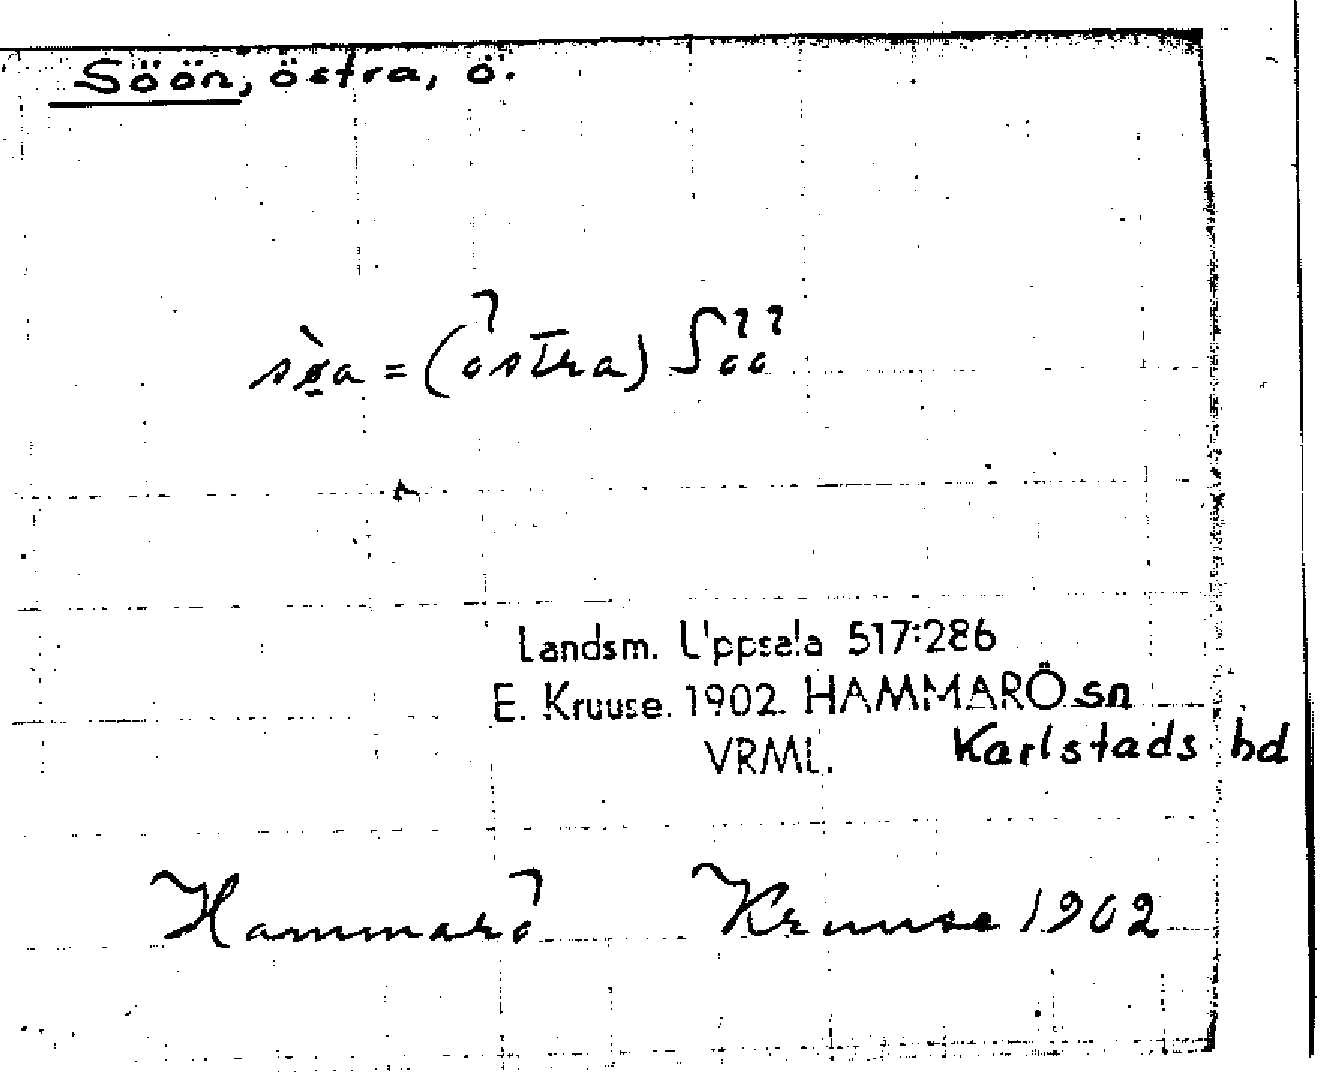 Söön, östra, ö.
sø̀a = (östra) Söö
Landsm. Uppsala 517:286
E. Kruuse. 1902 HAMMARÖ sn
VRML. Karlstads hd
Hammarö Kruuse 1902